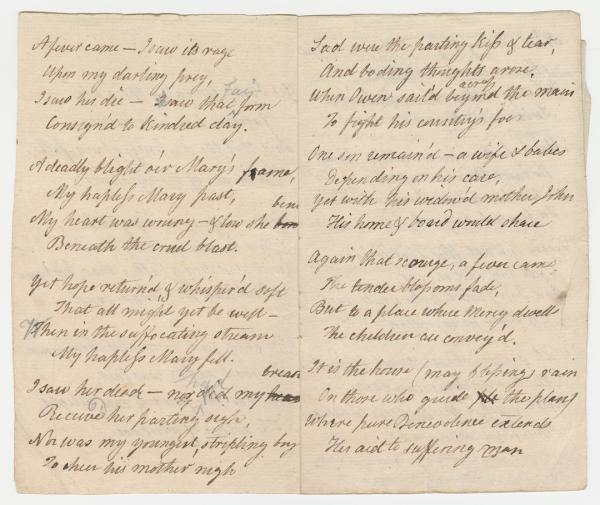 A fever came — I saw its rage
Upon my darling prey,
fair
I saw her die — I saw that form
Consign'd to Kindred clay.
A deadly blight o'er Mary's frame,
My hapless Mary past,
My heart was wrung — & low she
Beneath the cruel blast.
Yet hope return'd & whisper'd soft
That all might yet be well —
When in the suffocating stream
My hapless Mary fell.
breast
I saw her dead — nor did my
Receive her parting sigh,
Nor was my youngest, stripling boy
To cheer his mother nigh
Sad were the parting Kiss & tear,
And boding thoughts arose,
across
When Owen sail'd beyond the main
To fight his country's foes
One son remain'd — a wife & babes
Depending on his care,
Yet with his widow'd mother, John
His home & board would share
Again that scourge, a fever came,
The tender blossoms fade,
But to a place where Mercy dwells
The children are convey'd.
It is the house (may blessings rain
On those who guide the plan)
Where pure Benevolence extends
Her aid to suffering man